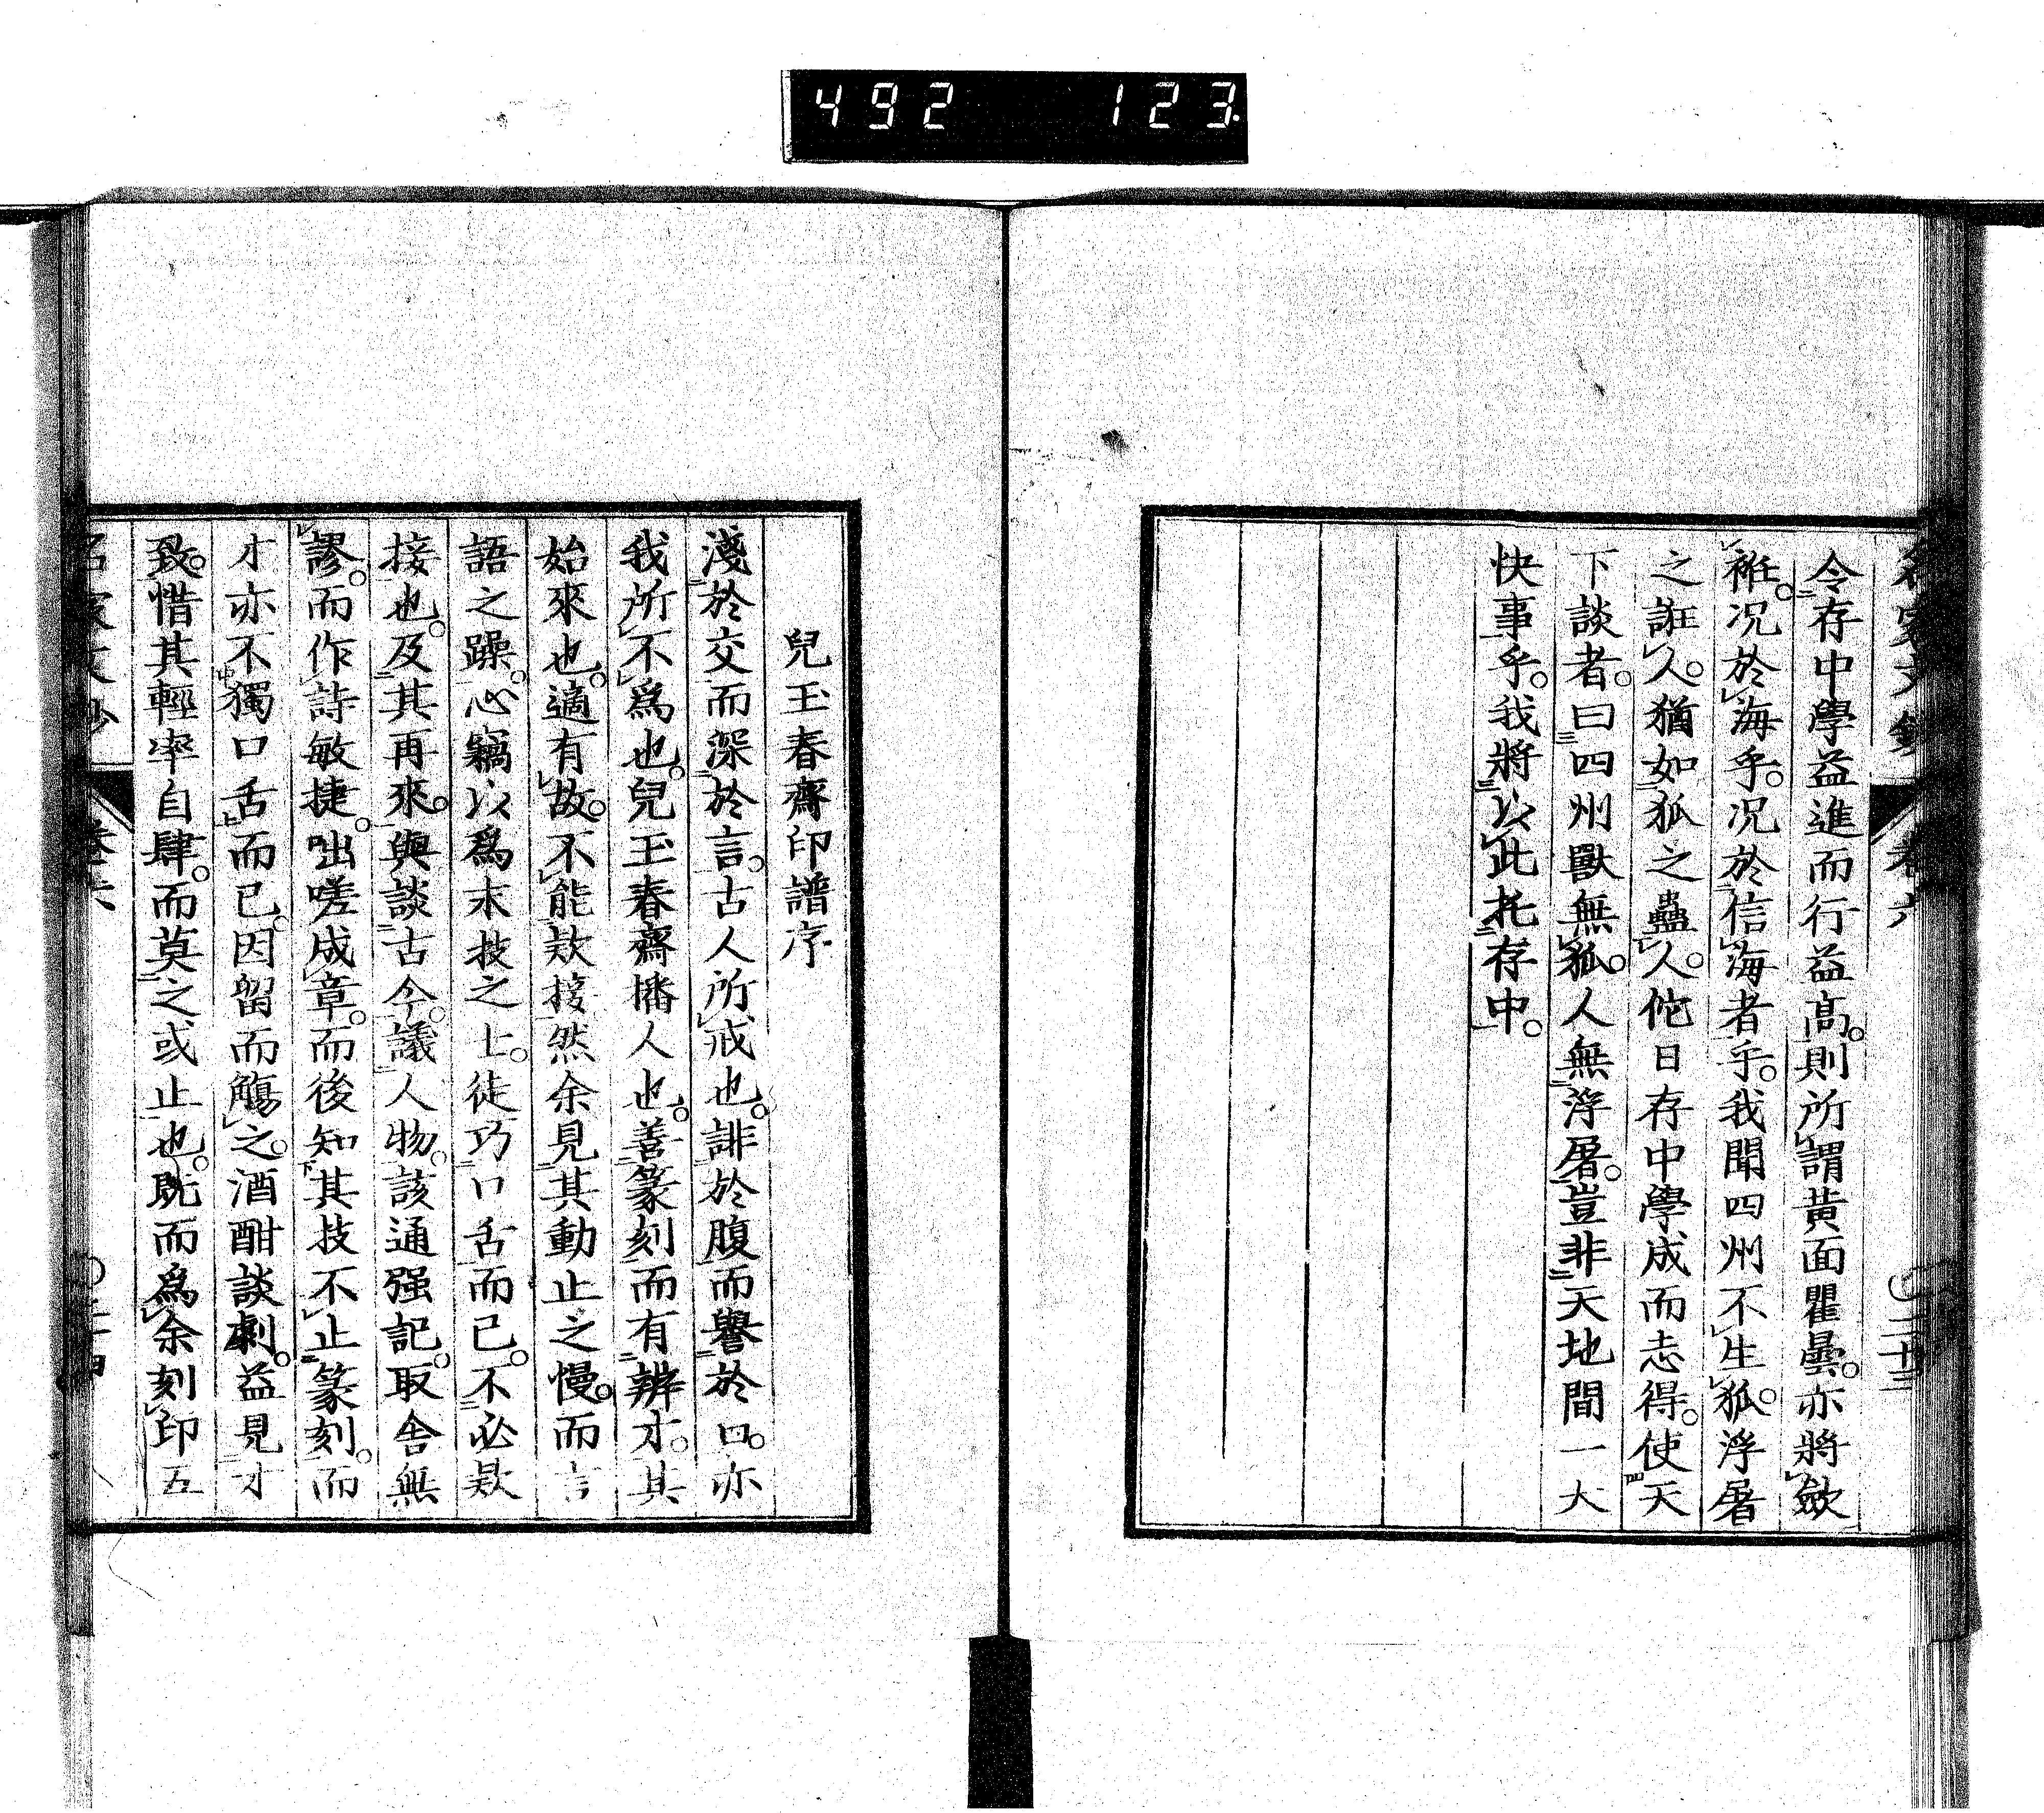 492 123
名家文鈔 卷六 二十三
令存中學益進而行益高。則所謂黃面瞿曇。亦將斂
衽。況於海乎。況於信海者乎。我聞四州不生狐。浮屠
之誑人。猶如狐之蠱人。佗日存中學成而志得。使天
下談者。曰四州獸無狐。人無浮屠。豈非天地間一大
快事乎。我將以此托存中。
兒玉春齋印譜序
淺於交而深於言。古人所戒也。誹於腹而譽於口。亦
我所不爲也。兒玉春齋播人也。善篆刻而有辨才。其
始來也。適有故。不能欵接然余見其動止之慢。而言
語之躁。心竊以爲末技之士。徒巧口舌而已。不必欵
接也。及其再來。與談古今。議人物。該通强記。取舍無
謬。而作詩敏捷。咄嗟成章。而後知其技不止篆刻。而
才亦不獨口舌而已。因留而觴之。酒酣談劇。益見才
致。惜其輕率自肆。而莫之或止也。既而爲余刻印五
名家文鈔 卷六 二十四